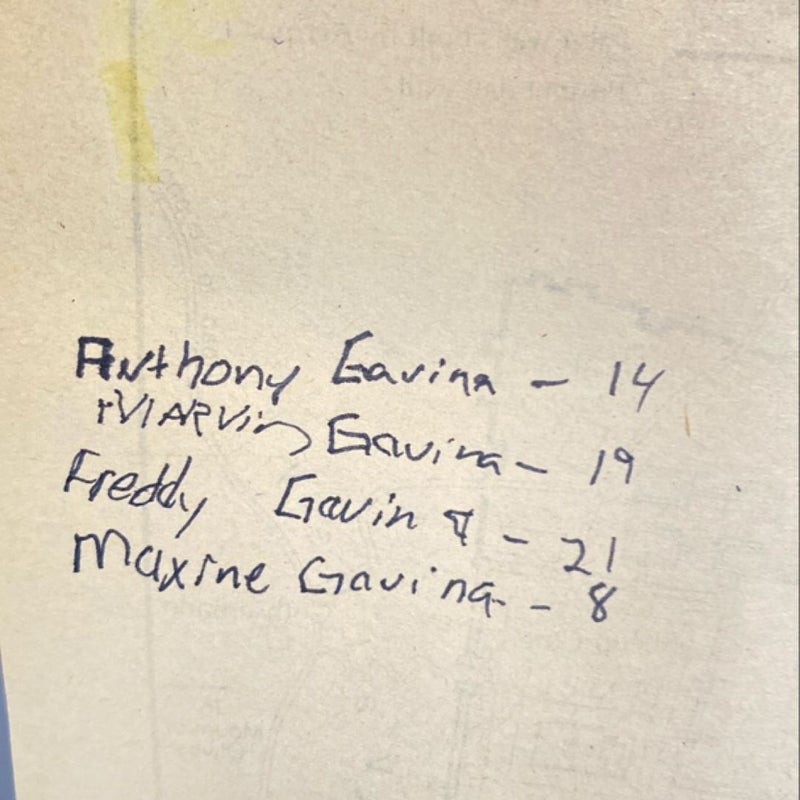 Anthony Gavina - 14
MARVin Gavina - 19
Freddy Gavina - 21
Maxine Gavina - 8